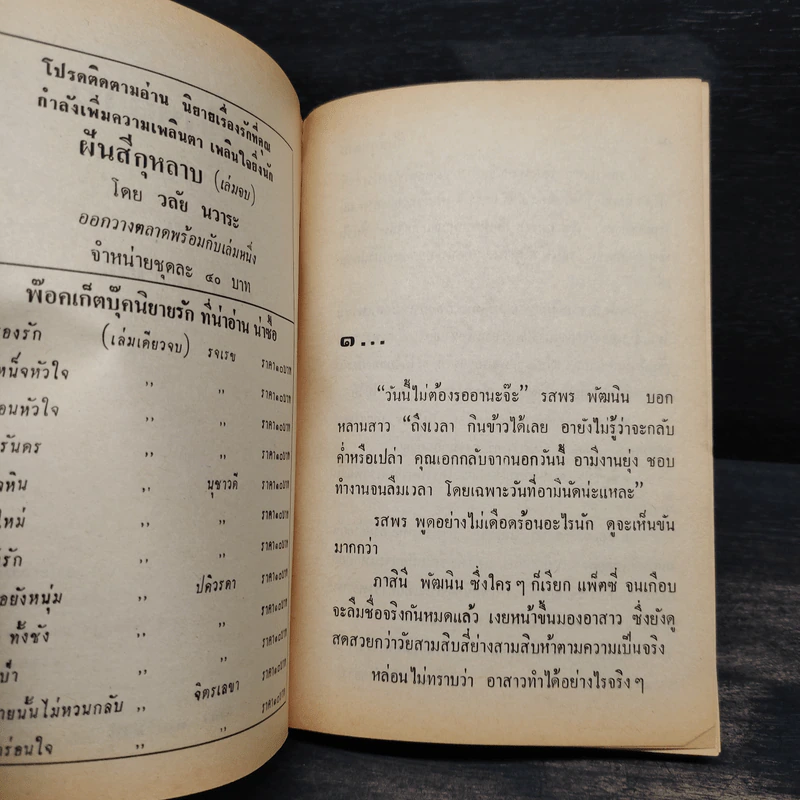 โปรดติดตามอ่าน นิยายเรื่องรักที่คุณ
กำลังเพิ่มความเพลินตา เพลินใจยิ่งนัก
ฝันสีกุหลาบ (เล่มจบ)
โดย วลัย นวาระ
ออกวางตลาดพร้อมกับเล่มหนึ่ง
จำหน่ายชุดละ ๔๐ บาท
พ๊อคเก็ตบุ๊คนิยายรัก ที่น่าอ่าน น่าซื้อ
องรัก (เล่มเดียวจบ) รจเรข ราคา๑๐บาท
หน็จหัวใจ ,, ,, ราคา๑๐บาท
อนหัวใจ ,, ,, ราคา๑๐บาท
รันดร ,, ,, ราคา๑๐บาท
หิน ,, นุชาวดี ราคา๑๐บาท
ใหม่ ,, ,, ราคา๑๐บาท
รัก ,, ,, ราคา๑๐บาท
อยังหนุ่ม ,, ปติวรดา ราคา๑๐บาท
ทั้งชัง ,, ,, ราคา๑๐บาท
ป่า ,, ,, ราคา๑๐บาท
ายนั้นไม่หวนกลับ ,, จิตรเลขา ราคา๑๐บาท
ร่อนใจ ,, ,, ราคา๑๐บาท
๑...
“วันนี้ไม่ต้องรออานะจ๊ะ” รสพร พัฒนิน บอก
หลานสาว “ถึงเวลา กินข้าวได้เลย อายังไม่รู้ว่าจะกลับ
ค่ำหรือเปล่า คุณเอกกลับจากนอกวันนี้ อามีงานยุ่ง ชอบ
ทำงานจนลืมเวลา โดยเฉพาะวันที่อามีนัดน่ะแหละ”
รสพร พูดอย่างไม่เดือดร้อนอะไรนัก ดูจะเห็นขัน
มากกว่า
ภาสินี พัฒนิน ซึ่งใครๆ ก็เรียก แพ็ตซี่ จนเกือบ
จะลืมชื่อจริงกันหมดแล้ว เงยหน้าขึ้นมองอาสาว ซึ่งยังดู
สดสวยกว่าวัยสามสิบสี่ย่างสามสิบห้าตามความเป็นจริง
หล่อนไม่ทราบว่า อาสาวทำได้อย่างไรจริงๆ